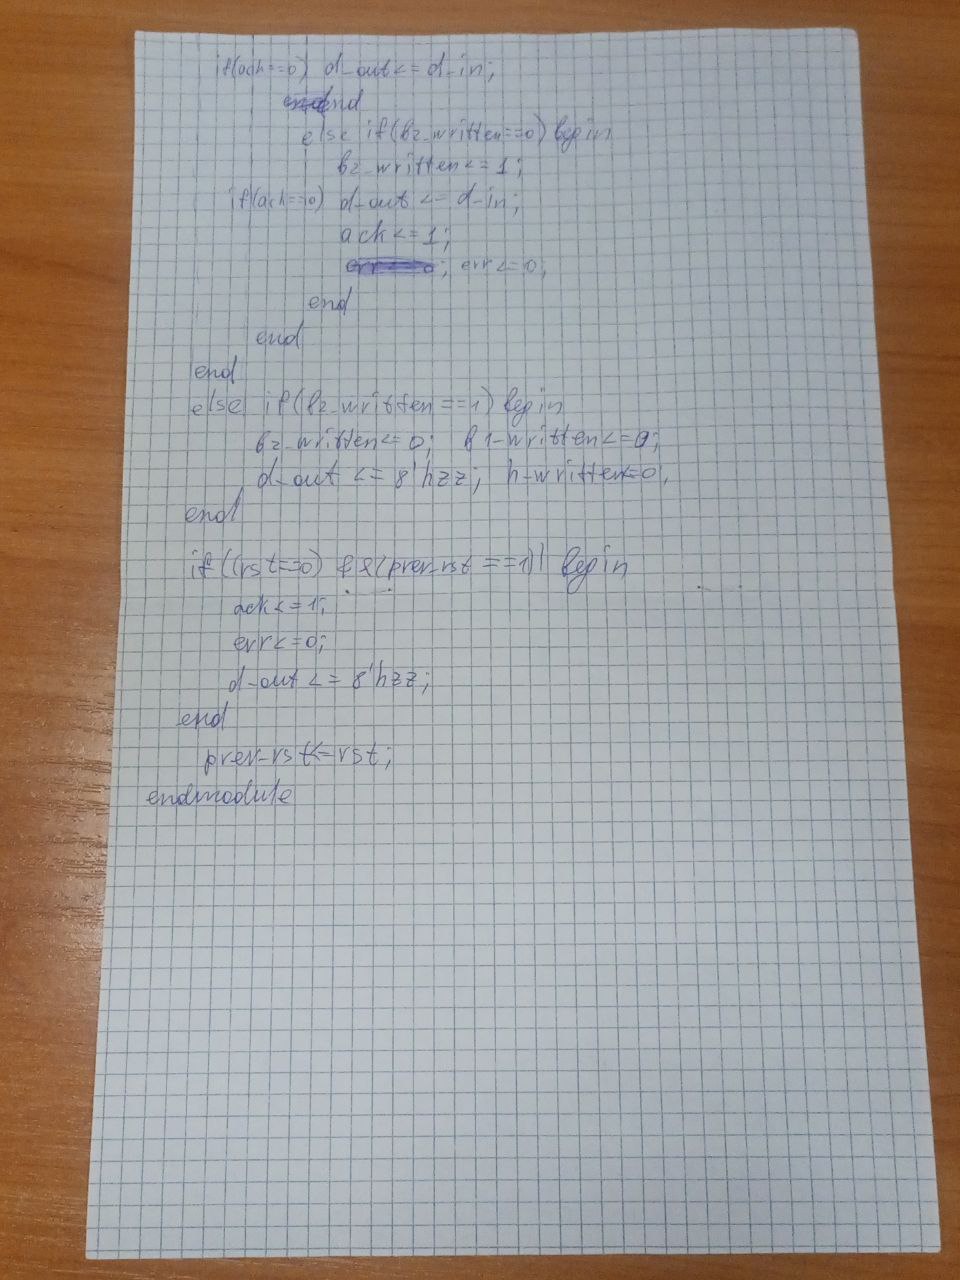 if(ack==0) d_out<=d_in;
end
else if(b2_written==0) begin
b2_written<=1;
if(ack==0) d_out <= d_in;
ack<=1;
err<=0;
end
end
end
else if(b2_written==1) begin
b2_written<=0; b1_written<=0;
d_out <= 8'hzz; h_written=0;
end
if((rst==0) &&(prev_rst==1)) begin
ack<=1;
err<=0;
d_out <= 8'hzz;
end
prev_rst<=rst;
endmodule